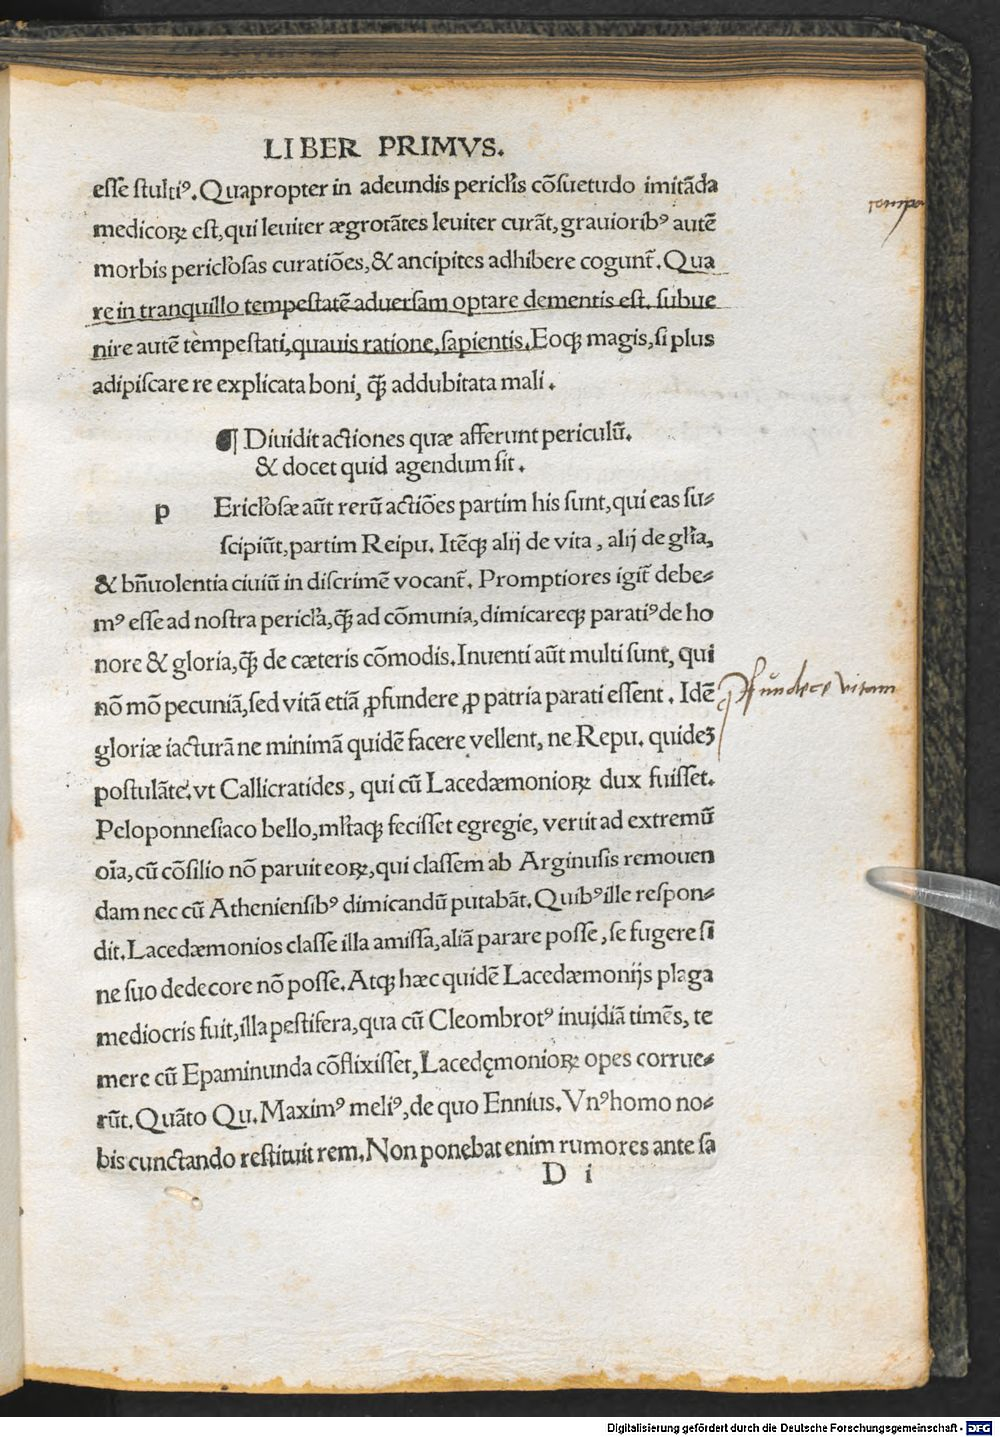 LIBER PRIMVS.
esse stultiꝰ. Quapropter in adeundis pericľis cõsuetudo imitãda
medicoꝝ est, qui leuiter ægrotãtes leuiter curãt, grauioribꝰ autẽ
morbis pericľosas curatiões, & ancipites adhibere cogunt̃. Qua
re in tranquillo tempestatẽ aduersam optare dementis est. subue
nire autẽ tempestati, quauis ratione, sapientis. Eoqꝫ magis, si plus
adipiscare re explicata boni, q̃ꝫ addubitata mali.
¶ Diuidit actiones quæ afferunt periculũ.
& docet quid agendum sit.
p Ericľosæ aũt rerũ actiões partim his sunt, qui eas su⸗
scipiũt, partim Reipu. Itẽqꝫ alij de vita, alij de gľia,
& bñuolentia ciuiũ in discrimẽ vocant̃. Promptiores igit̃ debe⸗
mꝰ esse ad nostra pericľa, q̃ꝫ ad cõmunia, dimicareqꝫ paratiꝰ de ho
nore & gloria, q̃ꝫ de cæteris cõmodis. Inuenti aũt multi sunt, qui
nõ mõ pecuniã, sed vitã etiã ꝓfundere ꝓ patria parati essent. Idẽ
ꝓfũdere vitam
gloriæ iacturã ne minimã quidẽ facere vellent, ne Repu. quideꝫ
postulãte. vt Callicratides, qui cũ Lacedæmonioꝝ dux fuisset.
Peloponnesiaco bello, mľtaqꝫ fecisset egregie, vertit ad extremũ
oĩa, cũ cõsilio nõ paruit eoꝝ, qui classem ab Arginusis remouen
dam nec cũ Atheniensibꝰ dimicandũ putabãt. Quibꝰ ille respon⸗
dit. Lacedæmonios classe illa amissa, aliã parare posse, se fugere si
ne suo dedecore nõ posse. Atqꝫ hæc quidẽ Lacedæmonijs plaga
mediocris fuit, illa pestifera, qua cũ Cleombrotꝰ inuidiã timẽs, te
mere cũ Epaminunda cõflixisset, Lacedęmonioꝝ opes corrue⸗
rũt. Quãto Qu. Maximꝰ meliꝰ, de quo Ennius. Vnꝰ homo no⸗
bis cunctando restituit rem. Non ponebat enim rumores ante sa
D i
Digitalisierung gefördert durch die Deutsche Forschungsgemeinschaft - DFG